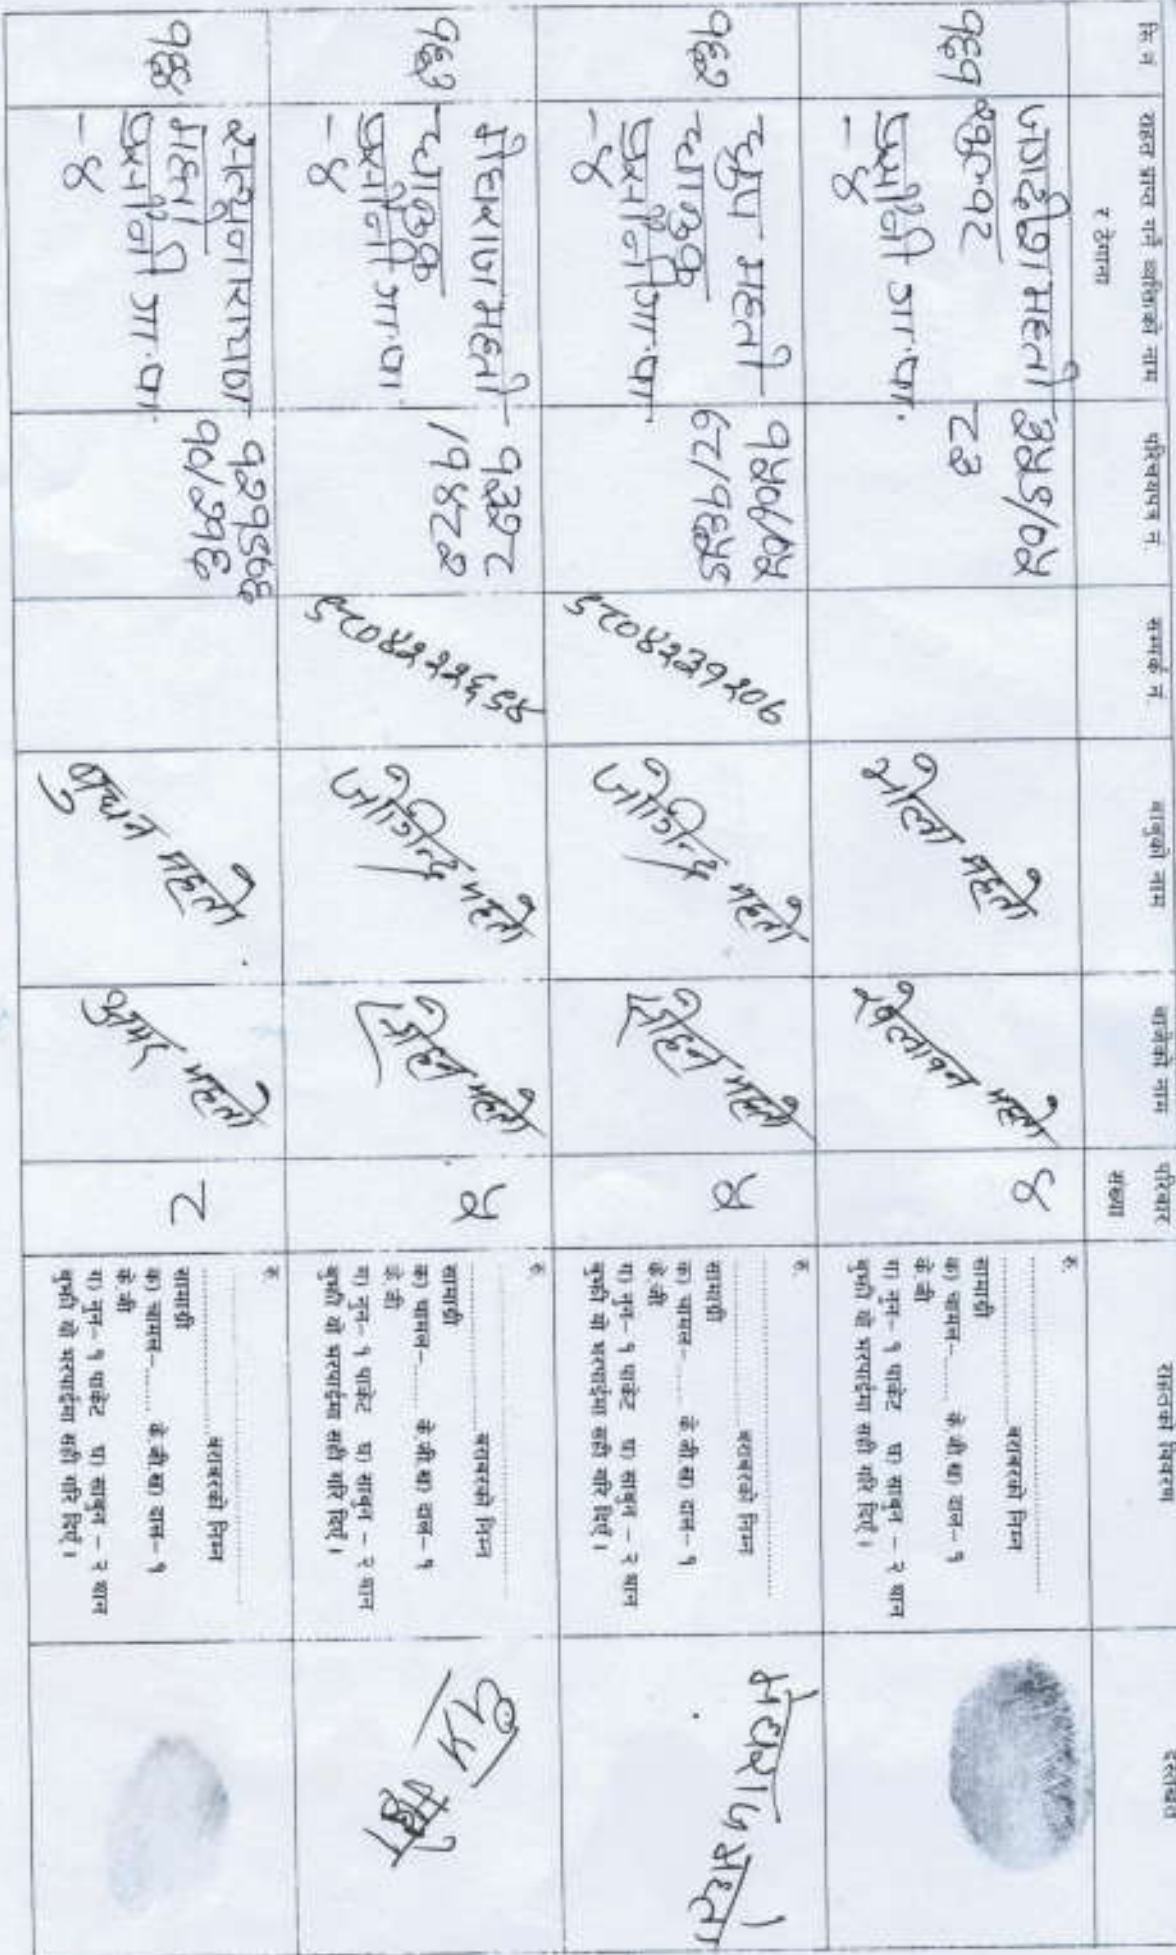 सि.नं
राहत प्राप्त गर्ने व्यक्तिको नाम
र ठेगाना
परिचयपत्र नं.
सम्पर्क नं.
बाबुको नाम
बाजेको नाम
परिवार
संख्या
राहतको विवरण
दस्तखत
१६१
महतो
प्रसौनी गा.पा.
-४
३५९/०५
८३
भोला महतो
खेलावन महतो
४
रु.
बराबरको निम्न
सामाग्री
क) चामल-...... के.जी ख) दाल- १
के.जी
ग) नुन- १ पाकेट घ) साबुन - २ थान
बुझी यो भरपाईमा सही गरि दिएँ ।
१६२
धुप महतो
प्रसौनी गा.पा.
-४
१५०७/०५
६८/१६५९
जोगिन्द्र महतो
महतो
५
रु.
बराबरको निम्न
सामाग्री
क) चामल-...... के.जी ख) दाल- १
के.जी
ग) नुन- १ पाकेट घ) साबुन - २ थान
बुझी यो भरपाईमा सही गरि दिएँ ।
मेघराज महतो
१६३
मेघराज महतो
प्रसौनी गा.पा.
-४
१३२८
/१४८२
जोगिन्द्र महतो
महतो
५
रु.
बराबरको निम्न
सामाग्री
क) चामल-...... के.जी ख) दाल- १
के.जी
ग) नुन- १ पाकेट घ) साबुन - २ थान
बुझी यो भरपाईमा सही गरि दिएँ ।
१६४
सत्यनारायण
महतो
प्रसौनी गा.पा.
-४
१२१९७६
१०/२१६
महतो
महतो
८
रु.
बराबरको निम्न
सामाग्री
क) चामल-...... के.जी ख) दाल- १
के.जी
ग) नुन- १ पाकेट घ) साबुन - २ थान
बुझी यो भरपाईमा सही गरि दिएँ ।